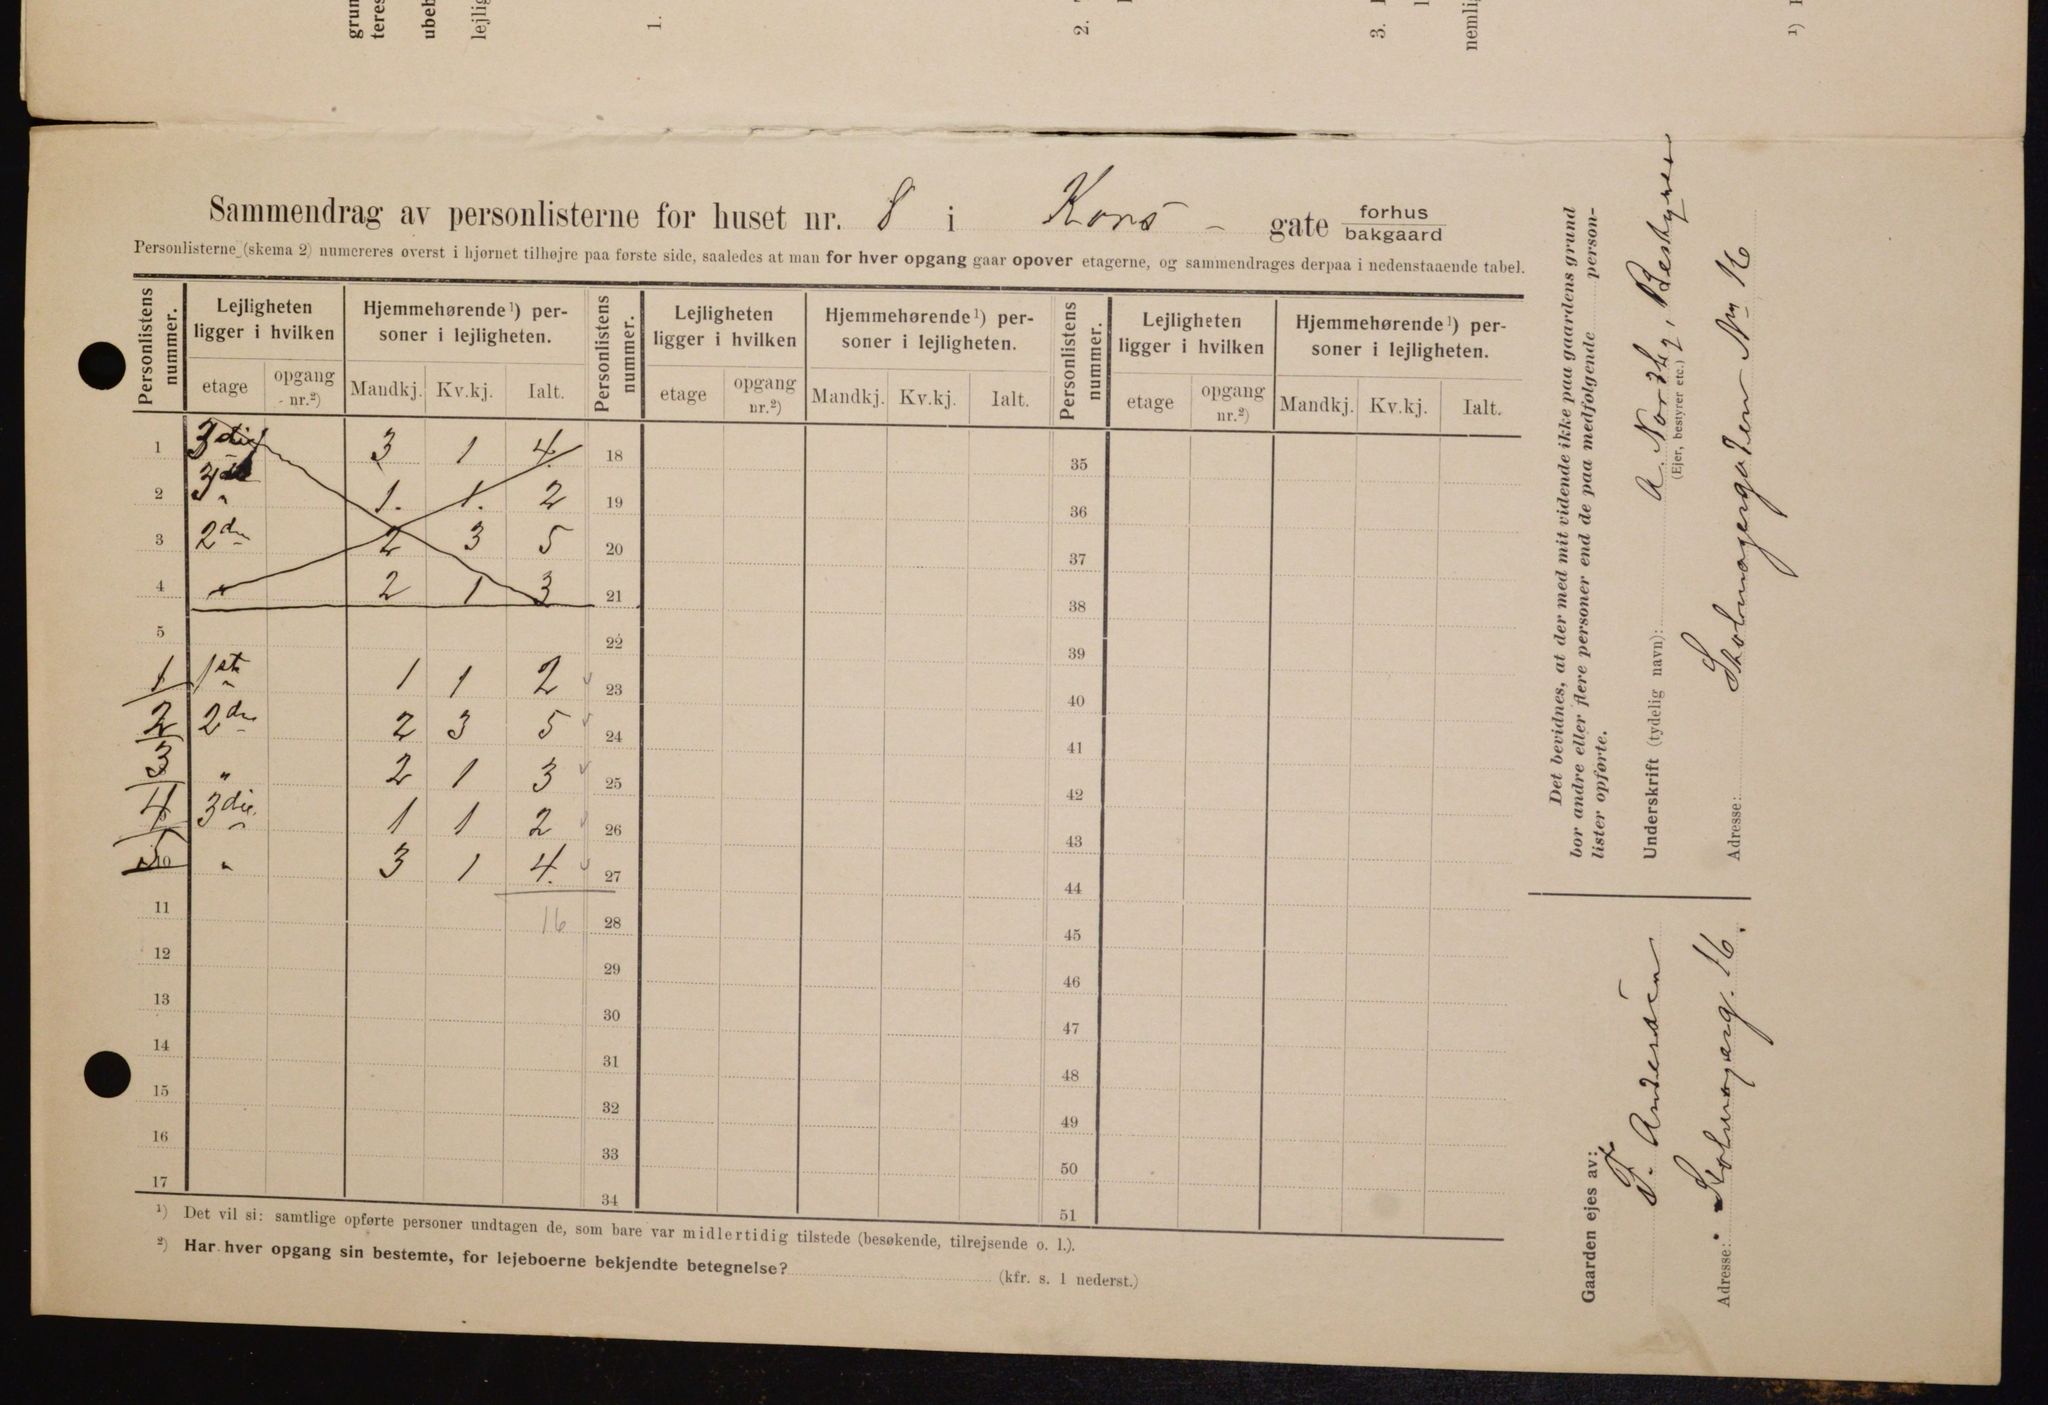 grun
teres
ubeb
lejlig
1.
2.
3.
nemlig
1)
Sammendrag av personlisterne for huset nr. 8 i Kors - gate forhus
bakgaard
Personlisterne (skema 2) numereres øverst i hjørnet tilhøjre paa første side, saaledes at man for hver opgang gaar opover etagerne, og sammendrages derpaa i nedenstaaende tabel.
Personlistens nummer. Lejligheten ligger i hvilken Hjemmehørende 1) personer i lejligheten. Personlistens nummer. Lejligheten ligger i hvilken Hjemmehørende 1) personer i lejligheten. Personlistens nummer. Lejligheten ligger i hvilken Hjemmehørende 1) personer i lejligheten.
etage opgang nr.2) Mandkj. Kv.kj. Ialt. etage opgang nr.2) Mandkj. Kv.kj. Ialt. etage opgang nr.2) Mandkj. Kv.kj. Ialt.
1 3die 3 1 4 18 35
2 3die 1. 1. 2 19 36
3 2den 2 3 5 20 37
4 2 1 3 21 38
5 22 39
1 1ste 1 1 2 23 40
2 2den 2 3 5 24 41
3 " 2 1 3 25 42
4 3die 1 1 2 26 43
5 10 " 3 1 4. 27 44
11 16 28 45
12 29 46
13 30 47
14 31 48
15 32 49
16 33 50
17 34 51
1) Det vil si: samtlige opførte personer undtagen de, som bare var midlertidig tilstede (besøkende, tilrejsende o. l.).
2) Har hver opgang sin bestemte, for lejeboerne bekjendte betegnelse? (kfr. s. 1 nederst.)
Det bevidnes, at der med mit vidende ikke paa gaardens grund
bor andre eller flere personer end de paa medfølgende person-
lister opførte.
Underskrift (tydelig navn): A. Norby, Bestyrer
(Ejer, bestyrer etc.)
Adresse: Skolmagergaden No 16
Gaarden ejes av:
F. Andersen
Adresse: Skolmagerg. 16.